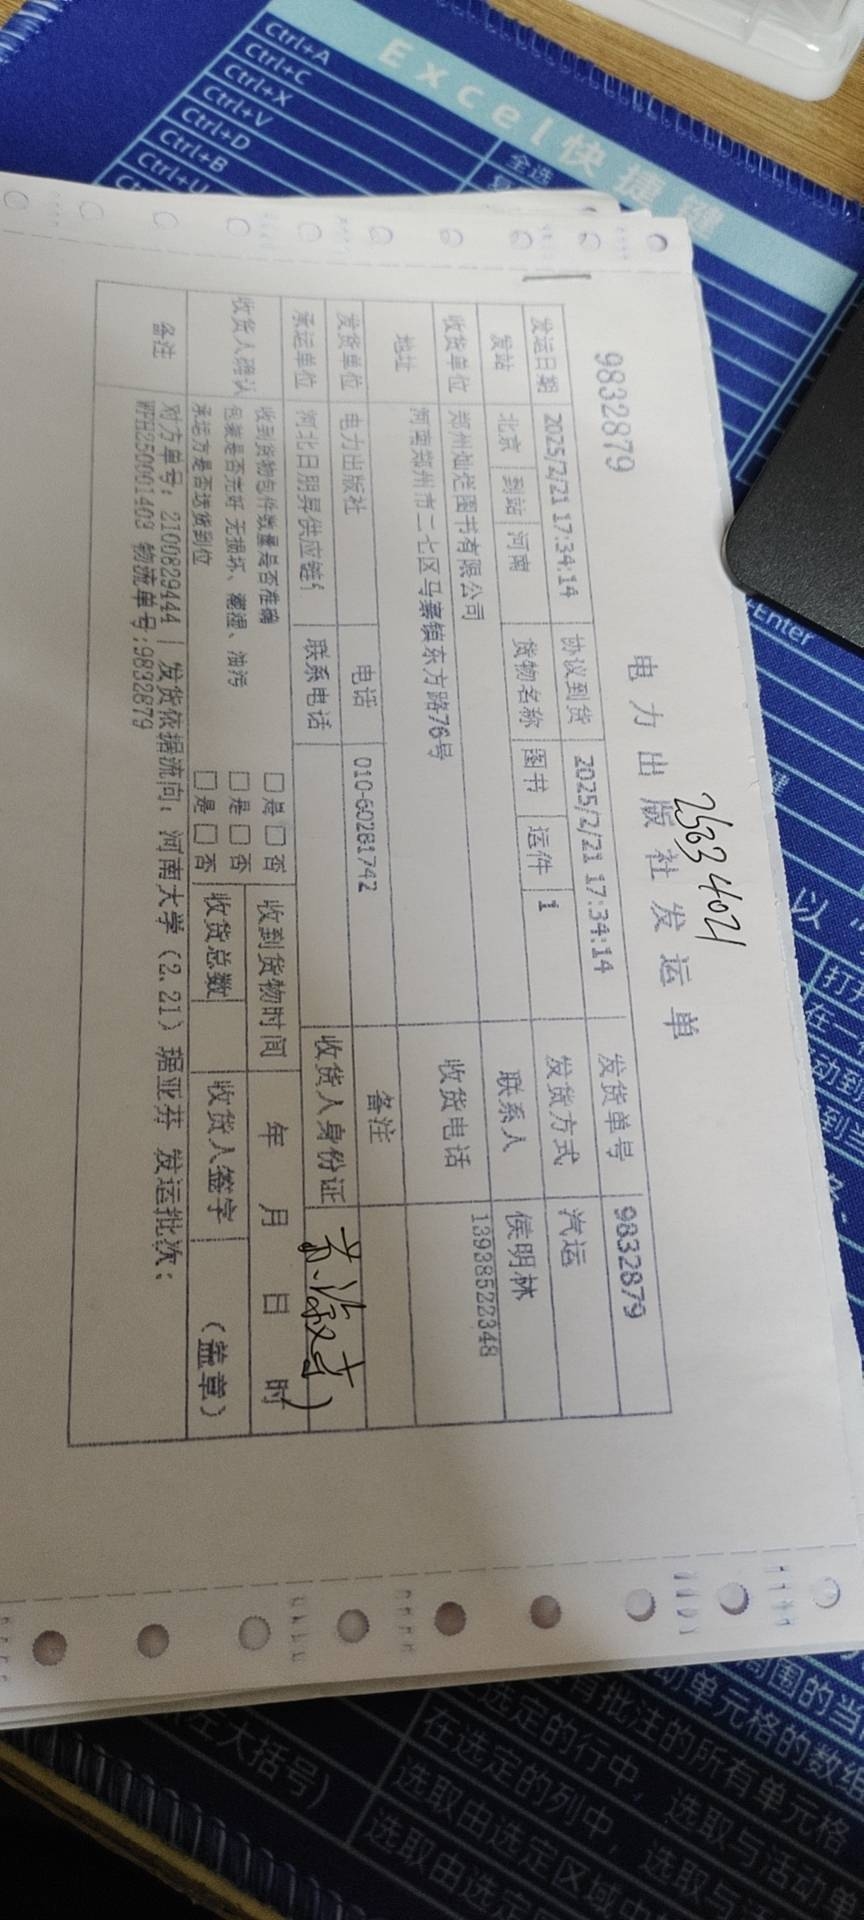 Excel快捷键
Ctrl+A 全选
Ctrl+C
Ctrl+X
Ctrl+V
Ctrl+D
Ctrl+B
Ctrl+U
+Enter
9832879
25634021
电力出版社发运单
发运日期 2025/2/21 17:34:14 协议到货 2025/2/21 17:34:14 发货单号 9832879
发站 北京 到站 河南 货物名称 图书 运件 1 发货方式 汽运
收货单位 郑州灿烂图书有限公司 联系人 侯明林
地址 河南郑州市二七区马寨镇东方路76号 收货电话 13938522348
发货单位 电力出版社 电话 010-60281742 备注
承运单位 河北日朋昇供应链 联系电话 收货人身份证
收货人确认 收到货物包件数量是否准确 □是□否 收到货物时间 年 月 日 时
包装是否完好 无损坏、潮湿、油污 □是□否
承运方是否送货到位 □是□否 收货总数 收货人签字 (盖章)
备注 对方单号：2100829444 | 发货依据流向：河南大学（2、21）琚亚芬 发运批次：
WFH250001403 物流单号:9832879
以
打开
在一
到当
周围的当
动单元格的数组
有批注的所有单元格
在选定的行中，选取与活动单
在选定的列中，选取与活
选取由选定区域中
选取由选定
左大括号)